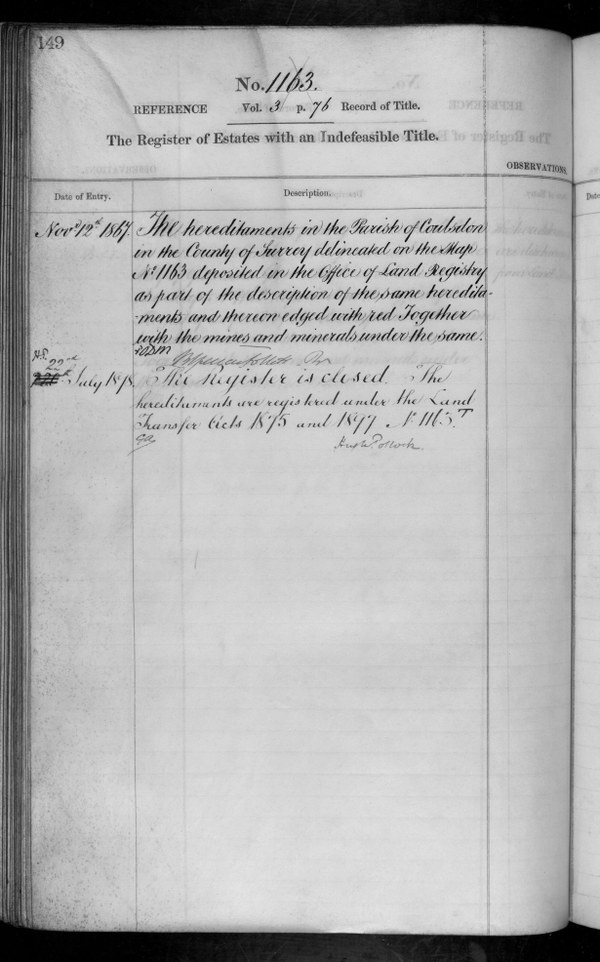 149
No. 1163.
REFERENCE Vol. 3 p. 76 Record of Title.
The Register of Estates with an Indefeasible Title.
OBSERVATIONS.
Date of Entry.
Description.
Novr 12th 1867. The hereditaments in the Parish of Coulsdon
in the County of Surrey delineated on the Map
No 1163 deposited in the Office of Land Registry
as part of the description of the same heredita-
-ments and thereon edged with red Together
with the mines and minerals under the same.
H.P.
22nd
July 1898. The Register is closed. The
hereditaments are registered under the Land
Transfer Acts 1875 and 1897 No 1163.T
Hugh Pollock